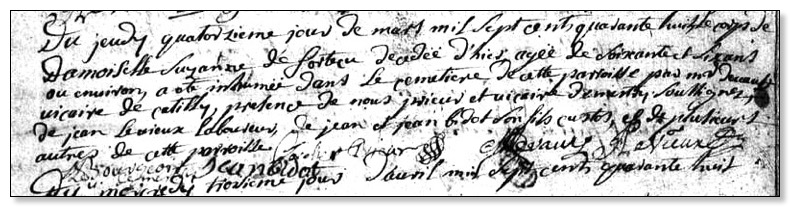 Du jeudy quatorzieme jour de mars mil sept cents quarante huit le corps de
Damoiselle Suzanne de fortecu decedée d'hier agée de soixante et six ans
ou environ, a été inhumée dans Le cemetiere de cette parroisse par mr
vicaire de catilly, presence de nous prieur et vicaire soussignes,
de jean Levieux Laboureur, de jean et jean bidot son fils custos, et de plusieurs
autres de cette parroisse
Bourgeon Jean bidot Levavas Le Vieux
Du troisieme jour d'avril mil sept cents quarante huit